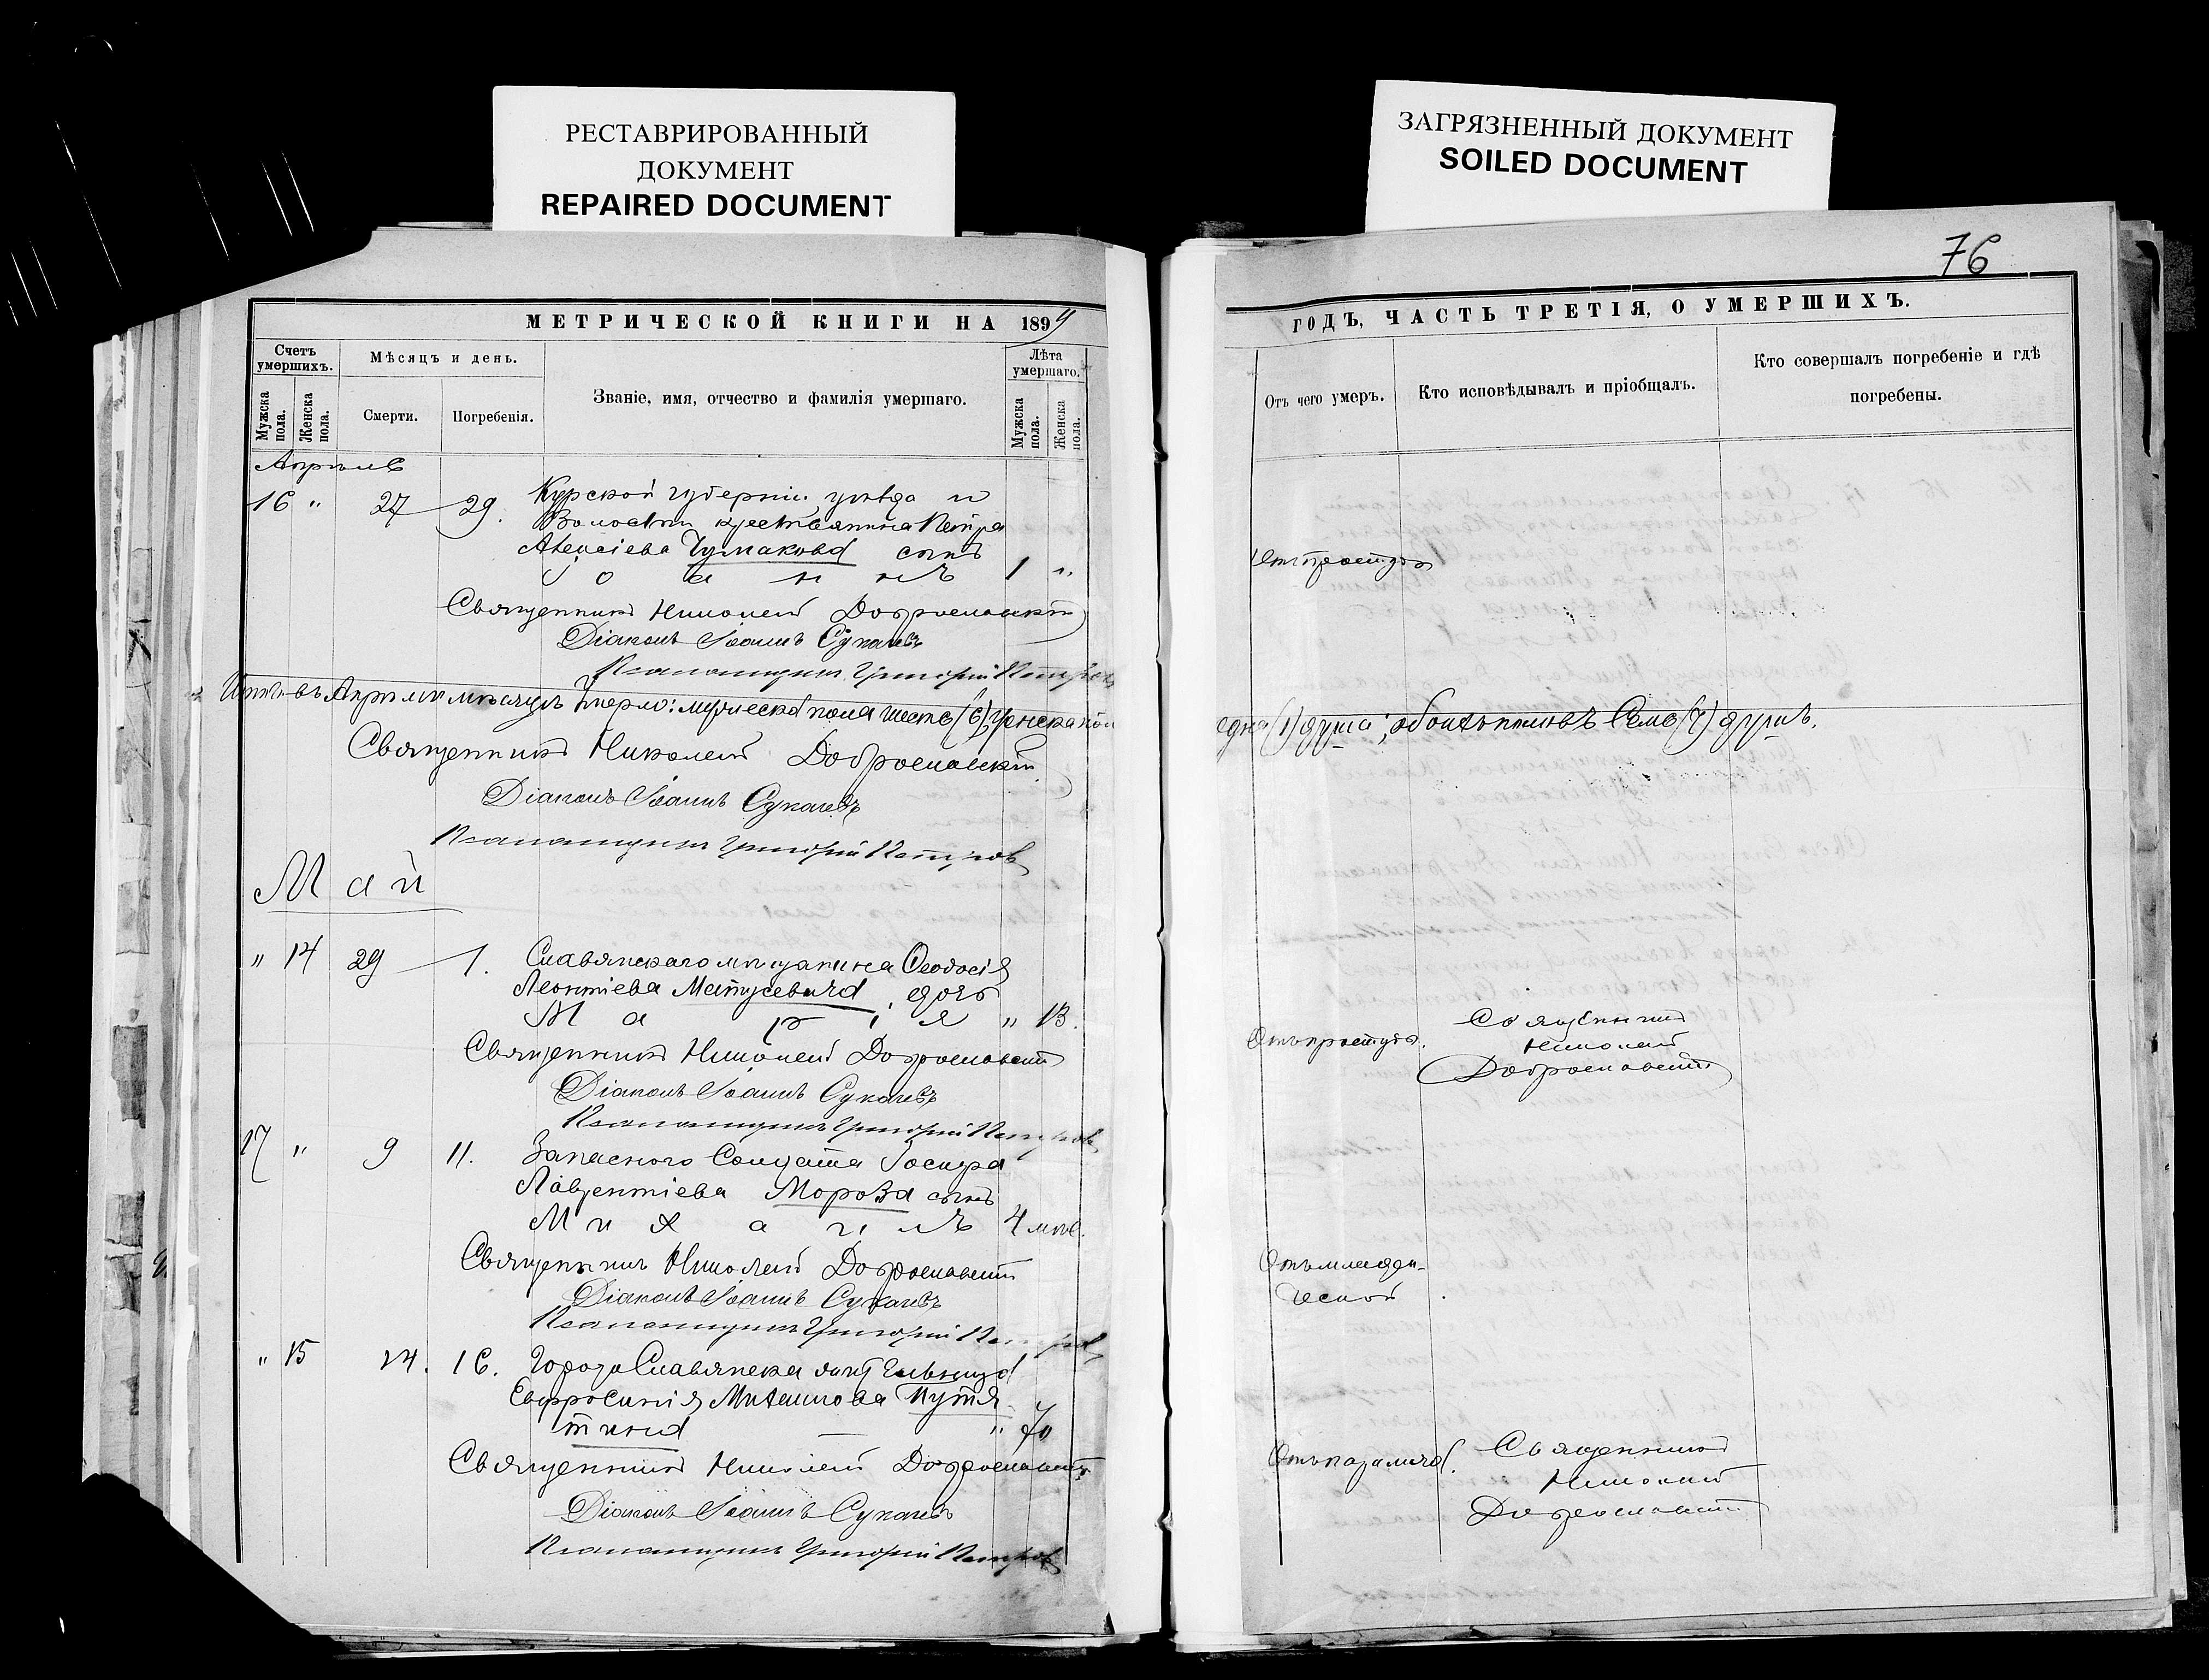 РЕСТАВРИРОВАННЫЙ
ДОКУМЕНТ
REPAIRED DOCUMENT
ЗАГРЯЗНЕННЫЙ ДОКУМЕНТ
SOILED DOCUMENT
76
МЕТРИЧЕСКОЙ КНИГИ НА 189
Счетъ умершихъ.
Мѣсяцъ и день.
Званіе, имя, отчество и фамилія умершаго.
Лѣта умершаго.
Мужска пола.
Женска пола.
Смерти.
Погребенія.
Мужска пола.
Женска пола.
Апрѣль
16 " 27 29. Курской губерніи, уѣзда и
Волости крестьянина Петра
Алексіева Чумакова сынъ
Іоаннъ 1 "
Священникъ Николай Доброславскій
Діаконъ Іоаннъ Сукачевъ
Псаломщикъ Григорій Петровъ
Итого въ Апрѣлѣ мѣсяцѣ умерло: мужеска пола шесть (6), женска пола
Священникъ Николай Доброславскій
Діаконъ Іоаннъ Сукачевъ
Псаломщикъ Григорій Петровъ
Май
" 14 29 1. Славянскаго мѣщанина Ѳеодосія
Леонтіева Матусевича, дочь
Марія " 13.
Священникъ Николай Доброславскій
Діаконъ Іоаннъ Сукачевъ
Псаломщикъ Григорій Петровъ
17 " 9 11. Запаснаго Солдата
Лаврентіева Мороза сынъ
Михаилъ 4 мѣс.
Священникъ Николай Доброславскій
Діаконъ Іоаннъ Сукачевъ
Псаломщикъ Григорій Петровъ
" 15 14. 16. Города Славянска
Евфросинія Михайлова Путя
тина " 70
Священникъ Николай Доброславскій
Діаконъ Іоаннъ Сукачевъ
Псаломщикъ Григорій Петровъ
ГОДЪ, ЧАСТЬ ТРЕТІЯ, О УМЕРШИХЪ.
Отъ чего умеръ.
Кто исповѣдывалъ и пріобщалъ.
Кто совершалъ погребеніе и гдѣ
погребены.
Отъ простуды
одна (1) душа; обоихъ половъ Семь (7) душъ.
Отъ простуды.
Священникъ
Николай
Доброславскій
Отъ младен-
ческой.
Отъ паралича.
Священникъ
Николай
Доброславскій